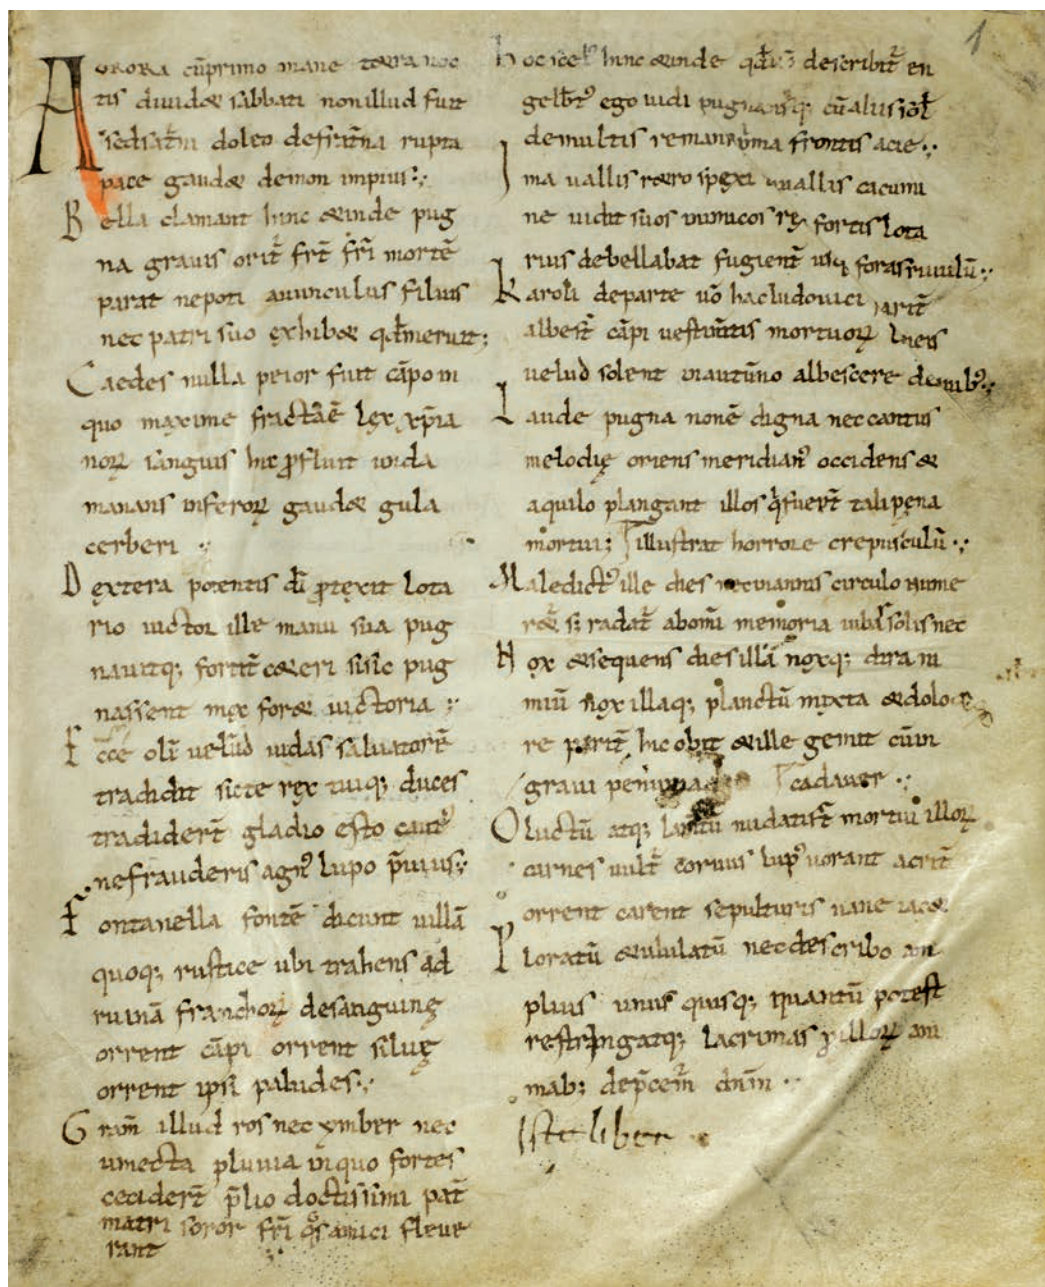 AURORA cũ primo mane tetra noc
tis diuid& sabbati non illud fuit
sed saturni doleo de frãtna rupta
pace gaud& demon impius:,
Bella clamant hinc &inde pug
na grauis orit̃ frt̃ fr̃i mortẽ
parat nepoti auunculus filius
nec patri suo exhib& qđ meruit;
Caedes nulla peior fuit cãpo in
quo maxime fractã ẽ lex xp̃ia
noꝝ sanguis hic ꝓfluit unda
manans inferoꝝ gaud& gula
cerberi :,
Dextera potentis dĩ ꝓtexit lota
rio uictor ille manu sua pug
nauitq; fortit̃ ceteri si sic pug
nassent mox for& uictoria :,
Ecce olĩ uelud iudas saluatorẽ
tradidit sic te rex tuiq; duces
tradidert̃ gladio esto caut᾽
ne frauderis agn᾽ lupo p̃uius:,
Fontanella fontẽ dicunt uillã
quoq; rustice ubi trahens ad
ruinã franchoꝝ de sanguinę
orrent cãpi orrent siluę
orrent ipsi paludes:,
Gram̃ illud ros nec ymber nec
umecta pluuia in quo fortes
cecidert̃ p̃lio doctissimi pat̃
matri soror fr̃i qos amici fleue
rant
1
Hoc hinc &inde describit̃ en
gelbt᾽ ego uidi pugnansq; cũ aliis sol̃
de multis remansi prima frontis acie:,
Ima uallis retro spexi uallis cacumi
ne uidit suos inimicos rex fortis lota
rius debellabat fugient̃ usq; foras riuulũ:,
Karoli de parte uõ hac ludouici parit̃
albest̃ cãpi uestimt̃is mortuoꝝ lineis
uelud solent in autũno albescere de auib᾽:,
Laude pugna non ẽ digna nec cantus
melodię oriens meridian᾽ occidens &
aquilo plangant illos q̃ fuert̃ tali pena
mortui; illustrat horrore crepusculũ:,
Maledict᾽ ille dies nec in annis circulo nume
r& s; radat̃ ab om̃i memoria iubar solis nec
Nox &sequens dies illã noxq; dira ni
miũ nox illa q; planctũ mixta &dolo
re parit̃ hic obit &ille gemit cũ in
graui penuria cadauer :,
O luctũ atq; lamtũ nudati st̃ mortui illoꝝ
carnes uult̃ coruus lup᾽ uorant acrit̃
orrent carent sepulturis uane iac&
Ploratũ &ululatũ nec describo am
plius unus quisq; quantũ potest
restringatq; lacrimas ꝓ illoꝝ ani
mab; dep̃cem̃ dnm̃ :,
Iste liber